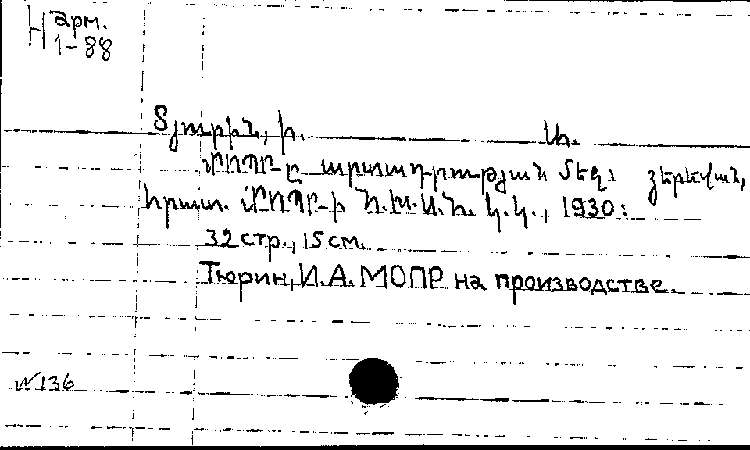 Н арм.
1-88
Տյուրին, Ի. Ա.
ՄՈՊՐ-ը արտադրության մեջ: Երևան,
հրատ. ՄՈՊՐ-ի Հ.Խ.Ս.Հ. Կ.Կ., 1930:
32 стр., 15 см.
Тюрин, И. А. МОПР на производстве.
№ 136